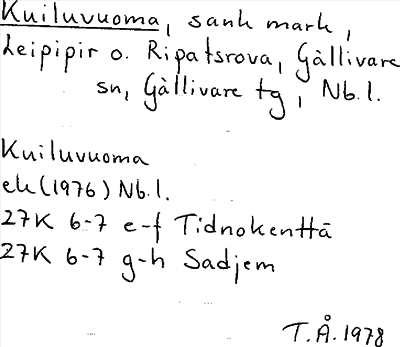 Kuiluvuoma, sank mark,
Leipipir o. Ripatsrova, Gällivare
sn, Gällivare tg, Nb.l.
Kuiluvuoma
ek (1976) Nb.l.
27K 6-7 e-f Tidnokenttä
27K 6-7 g-h Sadjem
T.Å. 1978